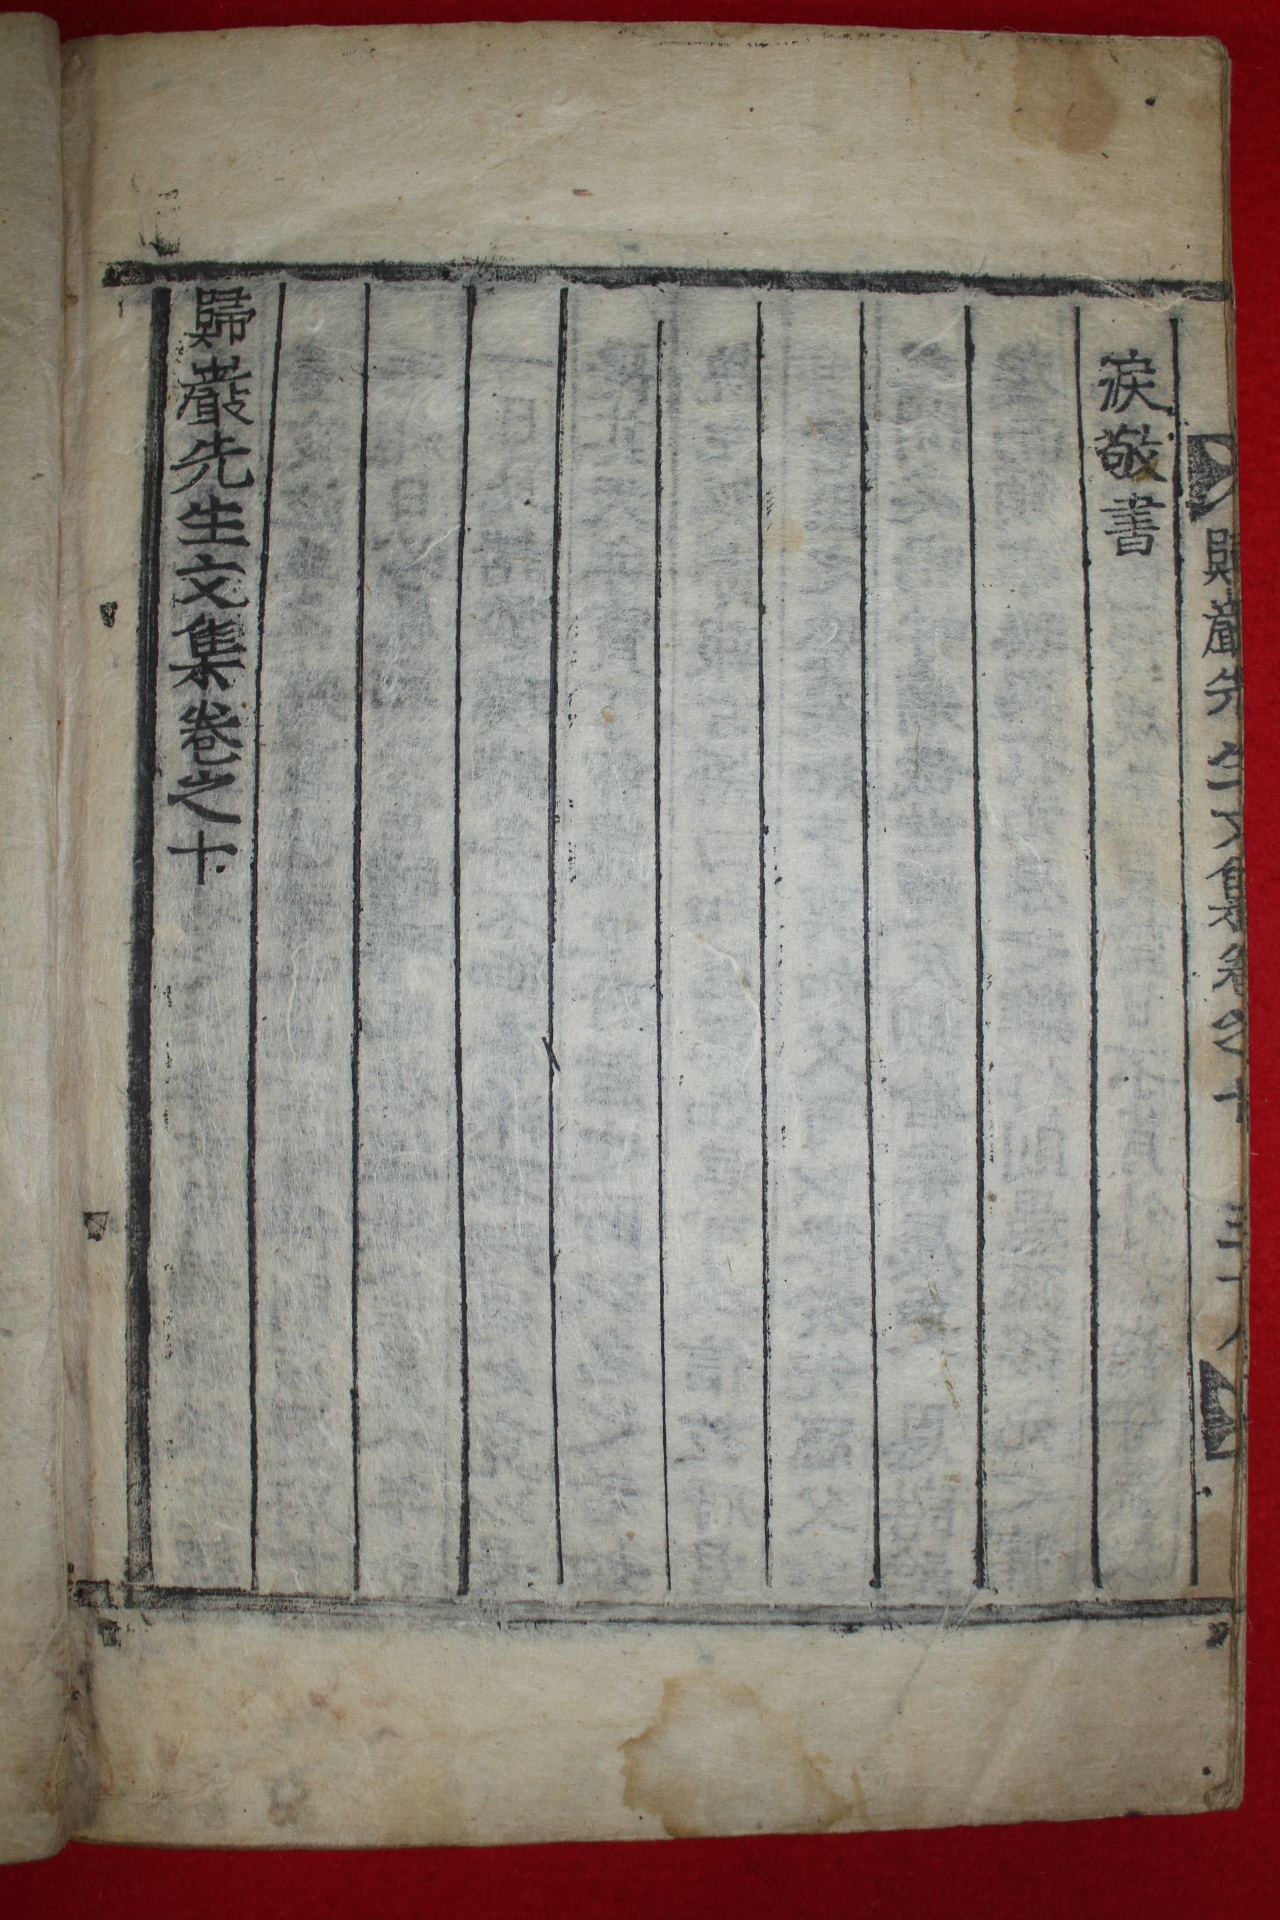 淚敬書
歸巖先生文集卷之十
歸巖先生文集卷之十 三十八